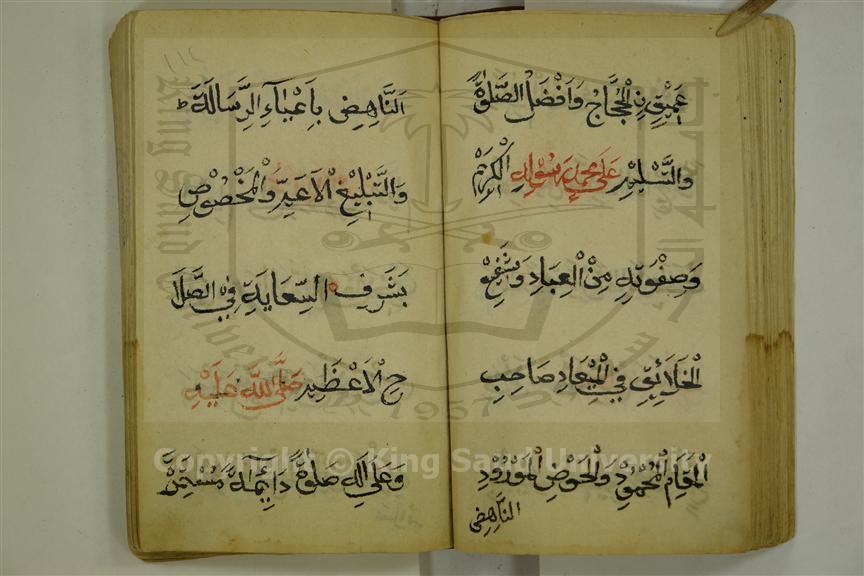 عَمِيْقٍ نِ لْحُجَّاجُ وَاَفْضَلُ الصَّلٰوةُ
وَالتَّسْلِيْمِ عَلٰى مُحَمَّدٍ رَسُوْلِهِ الْكَرِيْمِ
وَصِفْوَتِهٖ مِنْ الْعِبَادِ وَشَفِيْعِ
لْخَلَآئِقِ فِي لْمِيْعَادِ صَاحِبِ
الْمَقَامِ لْمَحْمُوْدِ وَلْحَوْضِ لْمَوْرُوْدِ
النَّاهِضِ
اَلنَّاهِضِ بِاَعْبَآءِ الرِّسَالَةِ
وَالتَّبْلِيْغِ لْاَعَمِّ وَلْمَخْصُوْصِ
بِشَرَفِ السِّعَايَةِ فِي الصَّلَا
حِ لْاَعْظَمِ صَلَّى اللّٰهُ عَلَيْهِ
وَعَلٰى اٰلِهِ صَلٰوةً دَآئِمَةً مُسْتَمِرَّةَ
Copyright © King Saud University
1957